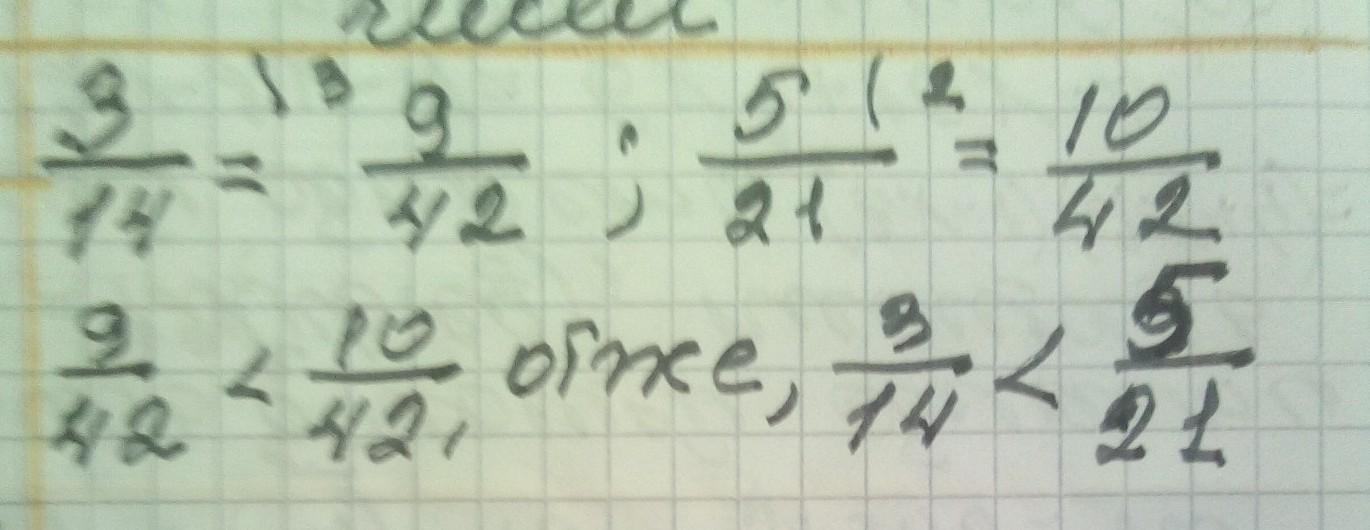 чисел
3/14 \3 = 9/42 ; 5/21 \2 = 10/42
9/42 < 10/42, отже, 3/14 < 5/21